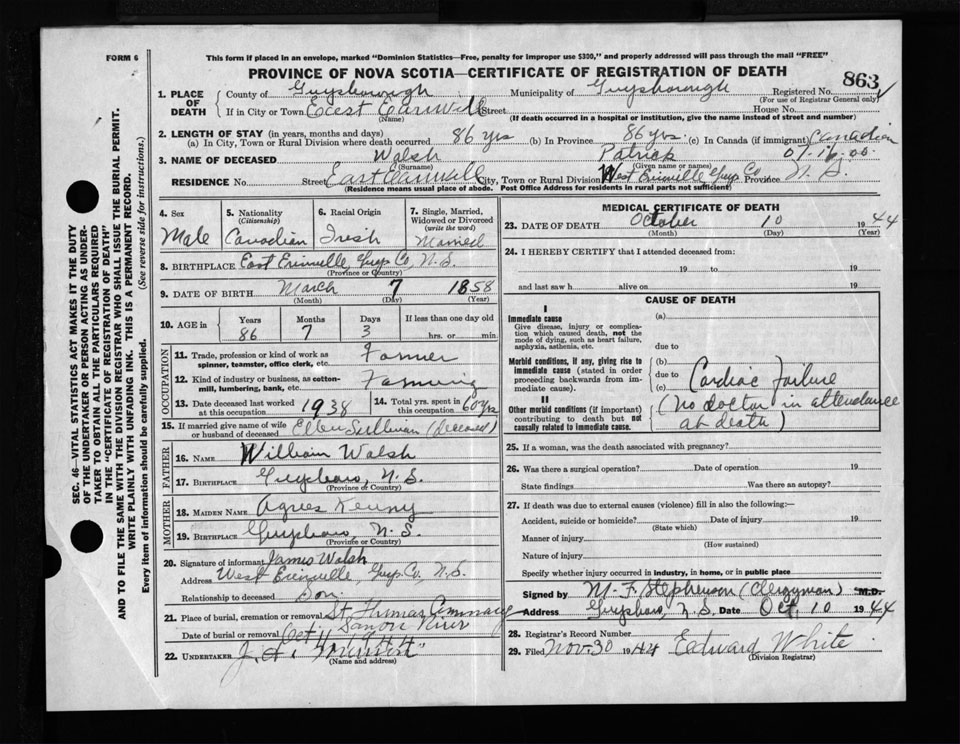 FORM 6
This form if placed in an envelope, marked "Dominion Statistics—Free, penalty for improper use $300," and properly addressed will pass through the mail "FREE"
PROVINCE OF NOVA SCOTIA—CERTIFICATE OF REGISTRATION OF DEATH
863
1. PLACE OF DEATH
County of Guysborough Municipality of Guysborough Registered No.
(For use of Registrar General only)
If in City or Town East Street House No.
(Name) (If death occurred in a hospital or institution, give the name instead of street and number)
2. LENGTH OF STAY (in years, months and days)
(a) In City, Town or Rural Division where death occurred 86 yrs (b) In Province 86 yrs. (c) In Canada (if immigrant) Canadian
3. NAME OF DECEASED Walsh Patrick 07.16.00.
(Surname) (Given name or names)
RESIDENCE No. Street East City, Town or Rural Division West Erinville Guys. Co. Province N. S.
(Residence means usual place of abode. Post Office Address for residents in rural parts not sufficient)
4. Sex Male
5. Nationality (Citizenship) Canadian
6. Racial Origin Irish
7. Single, Married, Widowed or Divorced (write the word) Married
8. BIRTHPLACE East Erinville, Guys. Co., N. S.
(Province or Country)
9. DATE OF BIRTH March 7 1858
(Month) (Day) (Year)
10. AGE in Years Months Days If less than one day old
86 7 3 hrs. or min.
OCCUPATION
11. Trade, profession or kind of work as spinner, teamster, office clerk, etc. Farmer
12. Kind of industry or business, as cotton-mill, lumbering, bank, etc. Farming
13. Date deceased last worked at this occupation 1938
14. Total yrs. spent in this occupation 60 yrs
15. If married give name of wife or husband of deceased Ellen Sullivan (deceased)
FATHER
16. NAME William Walsh
17. BIRTHPLACE Guysboro, N. S.
(Province or Country)
MOTHER
18. MAIDEN NAME Agnes Kenny
19. BIRTHPLACE Guysboro N. S.
(Province or Country)
20. Signature of informant James Walsh
Address West Erinville, Guys. Co., N. S.
Relationship to deceased Son
21. Place of burial, cremation or removal St Thomas
Salmon River
Date of burial or removal Oct 11 1944
22. UNDERTAKER J. A.
(Name and address)
MEDICAL CERTIFICATE OF DEATH
23. DATE OF DEATH October 10 1944
(Month) (Day) (Year)
24. I HEREBY CERTIFY that I attended deceased from:
19 to 19
and last saw h alive on 19
CAUSE OF DEATH
I
Immediate cause
Give disease, injury or complication which caused death, not the mode of dying, such as heart failure, asphyxia, asthenia, etc.
(a)
due to
Morbid conditions, if any, giving rise to immediate cause (stated in order proceeding backwards from immediate cause).
(b)
due to
(c)
Cardiac Failure
(No doctor in attendance
at death)
II
Other morbid conditions (if important) contributing to death but not causally related to immediate cause.
25. If a woman, was the death associated with pregnancy?
26. Was there a surgical operation? Date of operation 19
State findings Was there an autopsy?
27. If death was due to external causes (violence) fill in also the following:—
Accident, suicide or homicide? Date of injury 19
(State which)
Manner of injury
(How sustained)
Nature of injury
Specify whether injury occurred in industry, in home, or in public place
Signed by M. F. Stephenson (Clergyman) M.D.
Address Guysboro, N. S. Date Oct. 10 1944
28. Registrar's Record Number
29. Filed Nov. 30 1944 Edward White
(Division Registrar)
SEC. 46—VITAL STATISTICS ACT MAKES IT THE DUTY
OF THE UNDERTAKER OR PERSON ACTING AS UNDER-
TAKER TO OBTAIN ALL THE PARTICULARS REQUIRED
IN THE "CERTIFICATE OF REGISTRATION OF DEATH"
AND TO FILE THE SAME WITH THE DIVISION REGISTRAR WHO SHALL ISSUE THE BURIAL PERMIT.
WRITE PLAINLY WITH UNFADING INK. THIS IS A PERMANENT RECORD.
Every item of information should be carefully supplied. (See reverse side for instructions.)